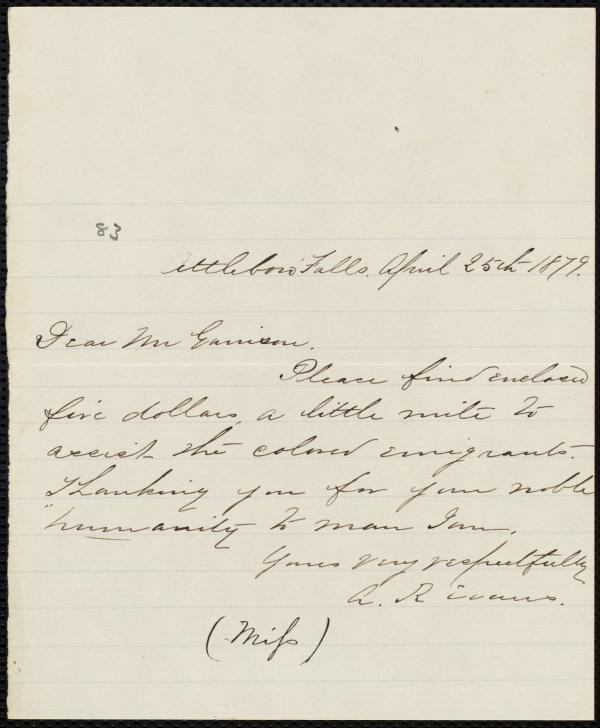 83
Attleboro' Falls. April 25th 1879.
Dear Mr Garrison.
Please find enclosed
five dollars, a little mite to
assist the colored emigrants.
Thanking you for your noble
"humanity to man I am,
Yours very respectfully
A. R Evans.
(Miss)